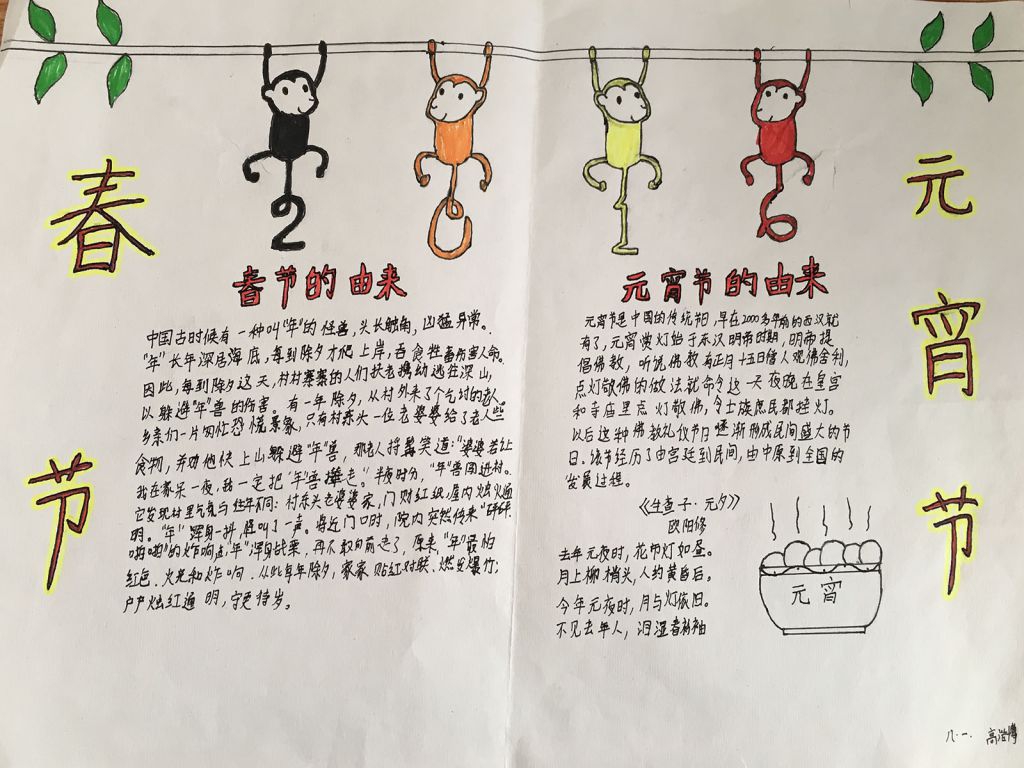 春节
2016
春节的由来
中国古时候有一种叫"年"的怪兽,头长触角,凶猛异常。
"年"长年深居海底,每到除夕才爬上岸,吞食牲畜伤害人命。
因此,每到除夕这天,村村寨寨的人们扶老携幼逃往深山,
以躲避"年"兽的伤害。有一年除夕,从村外来了个乞讨的老人。
乡亲们一片匆忙恐慌景象,只有村东头一位老婆婆给了老人些
食物,并劝他快上山躲避"年"兽,那老人捋髯笑道:"婆婆若让
我在家呆一夜,我一定把"年"兽撵走。"半夜时分,"年"兽闯进村。
它发现村里气氛与往年不同:村东头老婆婆家,门贴红纸,屋内烛火通
明。"年"浑身一抖,怪叫了一声。将近门口时,院内突然传来"砰砰
啪啪"的炸响声,"年"浑身战栗,再不敢向前走了,原来,"年"最怕
红色、火光和炸响。从此每年除夕,家家贴红对联、燃放爆竹;
户户烛红通明,守更待岁。
元宵节
元宵节的由来
元宵节是中国的传统节日,早在2000多年前的西汉就
有了,元宵赏灯始于东汉明帝时期,明帝提
倡佛教,听说佛教有正月十五日僧人观佛舍利,
点灯敬佛的做法就命令这一天夜晚在皇宫
和寺庙里点灯敬佛,令士族庶民都挂灯。
以后这种佛教礼仪节日逐渐形成民间盛大的节
日。该节经历了由宫廷到民间,由中原到全国的
发展过程。
《生查子·元夕》
欧阳修
去年元夜时,花市灯如昼。
月上柳梢头,人约黄昏后。
今年元夜时,月与灯依旧。
不见去年人,泪湿春衫袖
元宵
八·一. 高